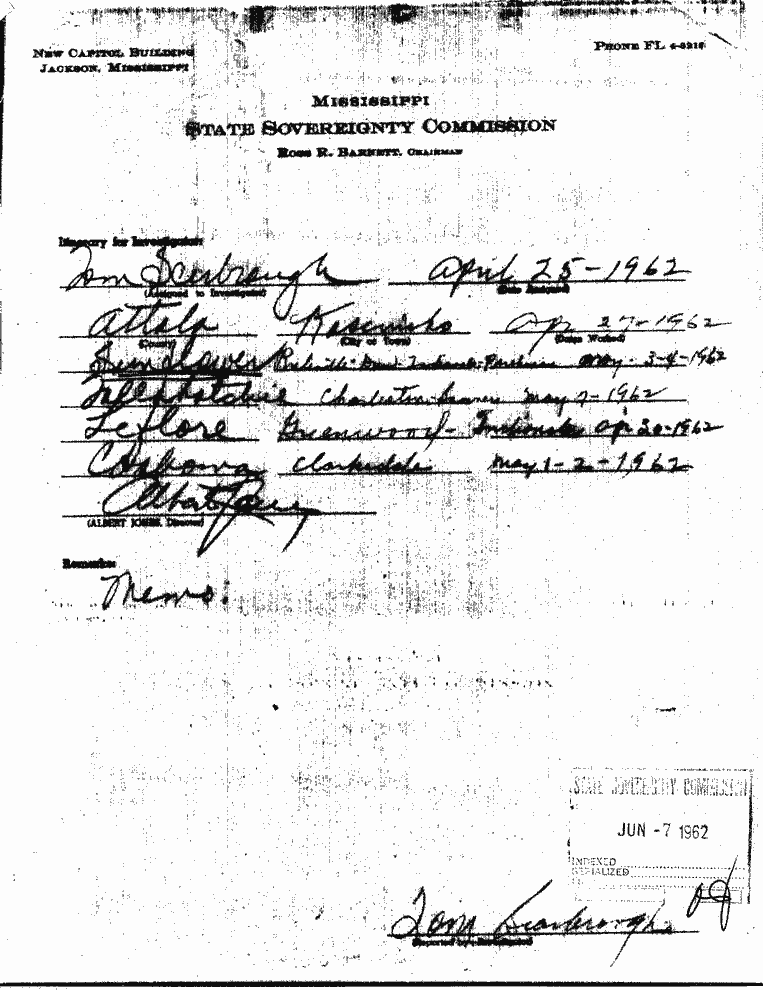 NEW CAPITOL BUILDING
JACKSON, MISSISSIPPI
PHONE FL 4-3218
MISSISSIPPI
STATE SOVEREIGNTY COMMISSION
ROSS R. BARNETT, CHAIRMAN
Itinerary for Investigation:
Tom Scarbrough April 25-1962
(Assigned to Investigate) (Date Assigned)
Attala Kosciusko Ap 27-1962
(County) (City or Town) (Dates Worked)
Sunflower May-3-4-1962
Tallahatchie Charleston-Sumner May 7-1962
Leflore Greenwood- Ap 30-1962
Coahoma Clarksdale May 1-2-1962
Albert Jones
(ALBERT JONES, Director)
Remarks:
Memo:
STATE SOVEREIGNTY COMMISSION
JUN -7 1962
INDEXED
SERIALIZED
Tom Scarbrough